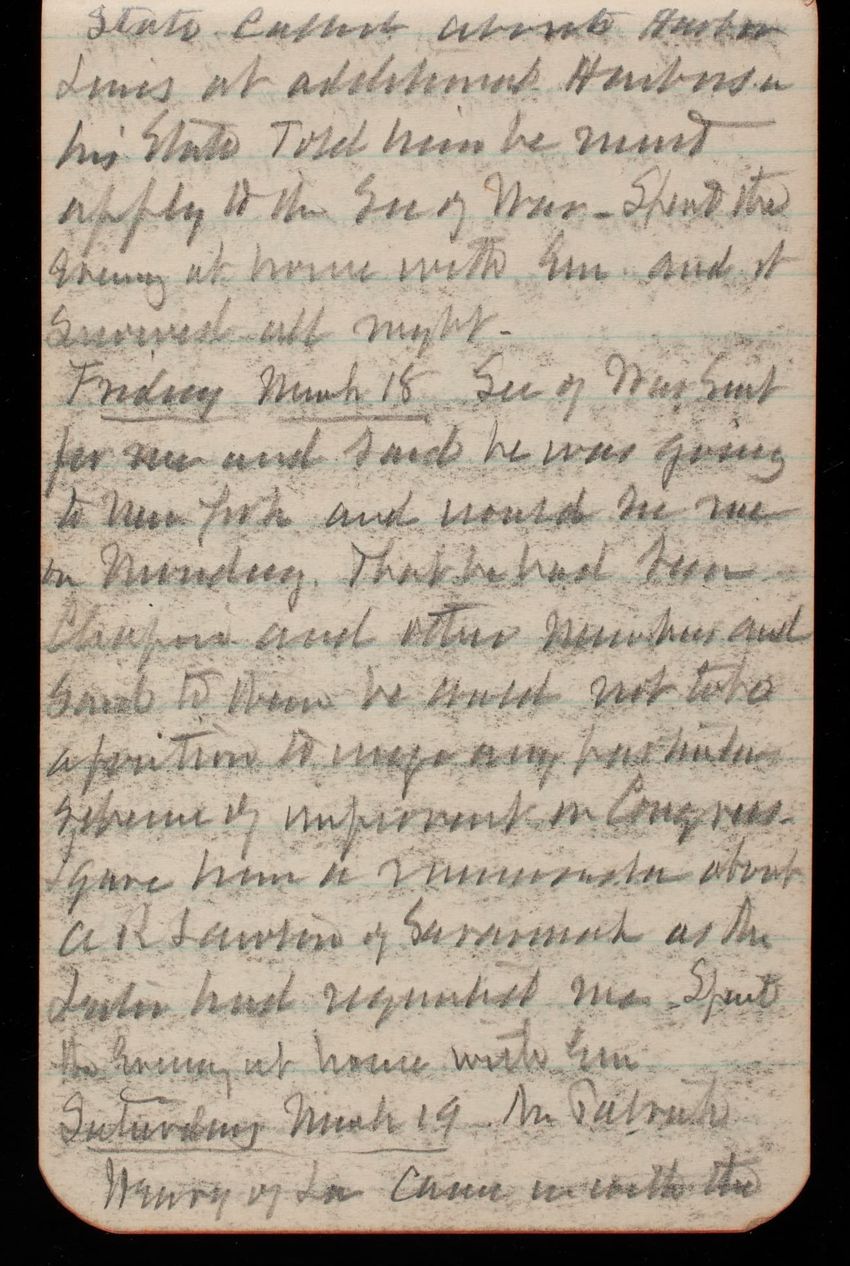 State called about Harbor
Lines at additional Harbors in
his State Told him he must
apply to the Sec of War - Spent the
Evening at home with Em and it
Snowed all night -
Friday March 18 Sec of War Sent
for me and said he was going
to New York and would see me
on Monday. That he had seen
Chapin and other Members and
Said to them he could not take
a position to urge any particular
Scheme of improvement on Congress -
I gave him a memoranda about
A R Lawton of Savannah as the
Latter had requested me - Spent
the Evening at home with Em
Saturday March 19 Mr Patrick
Henry of La came in with the